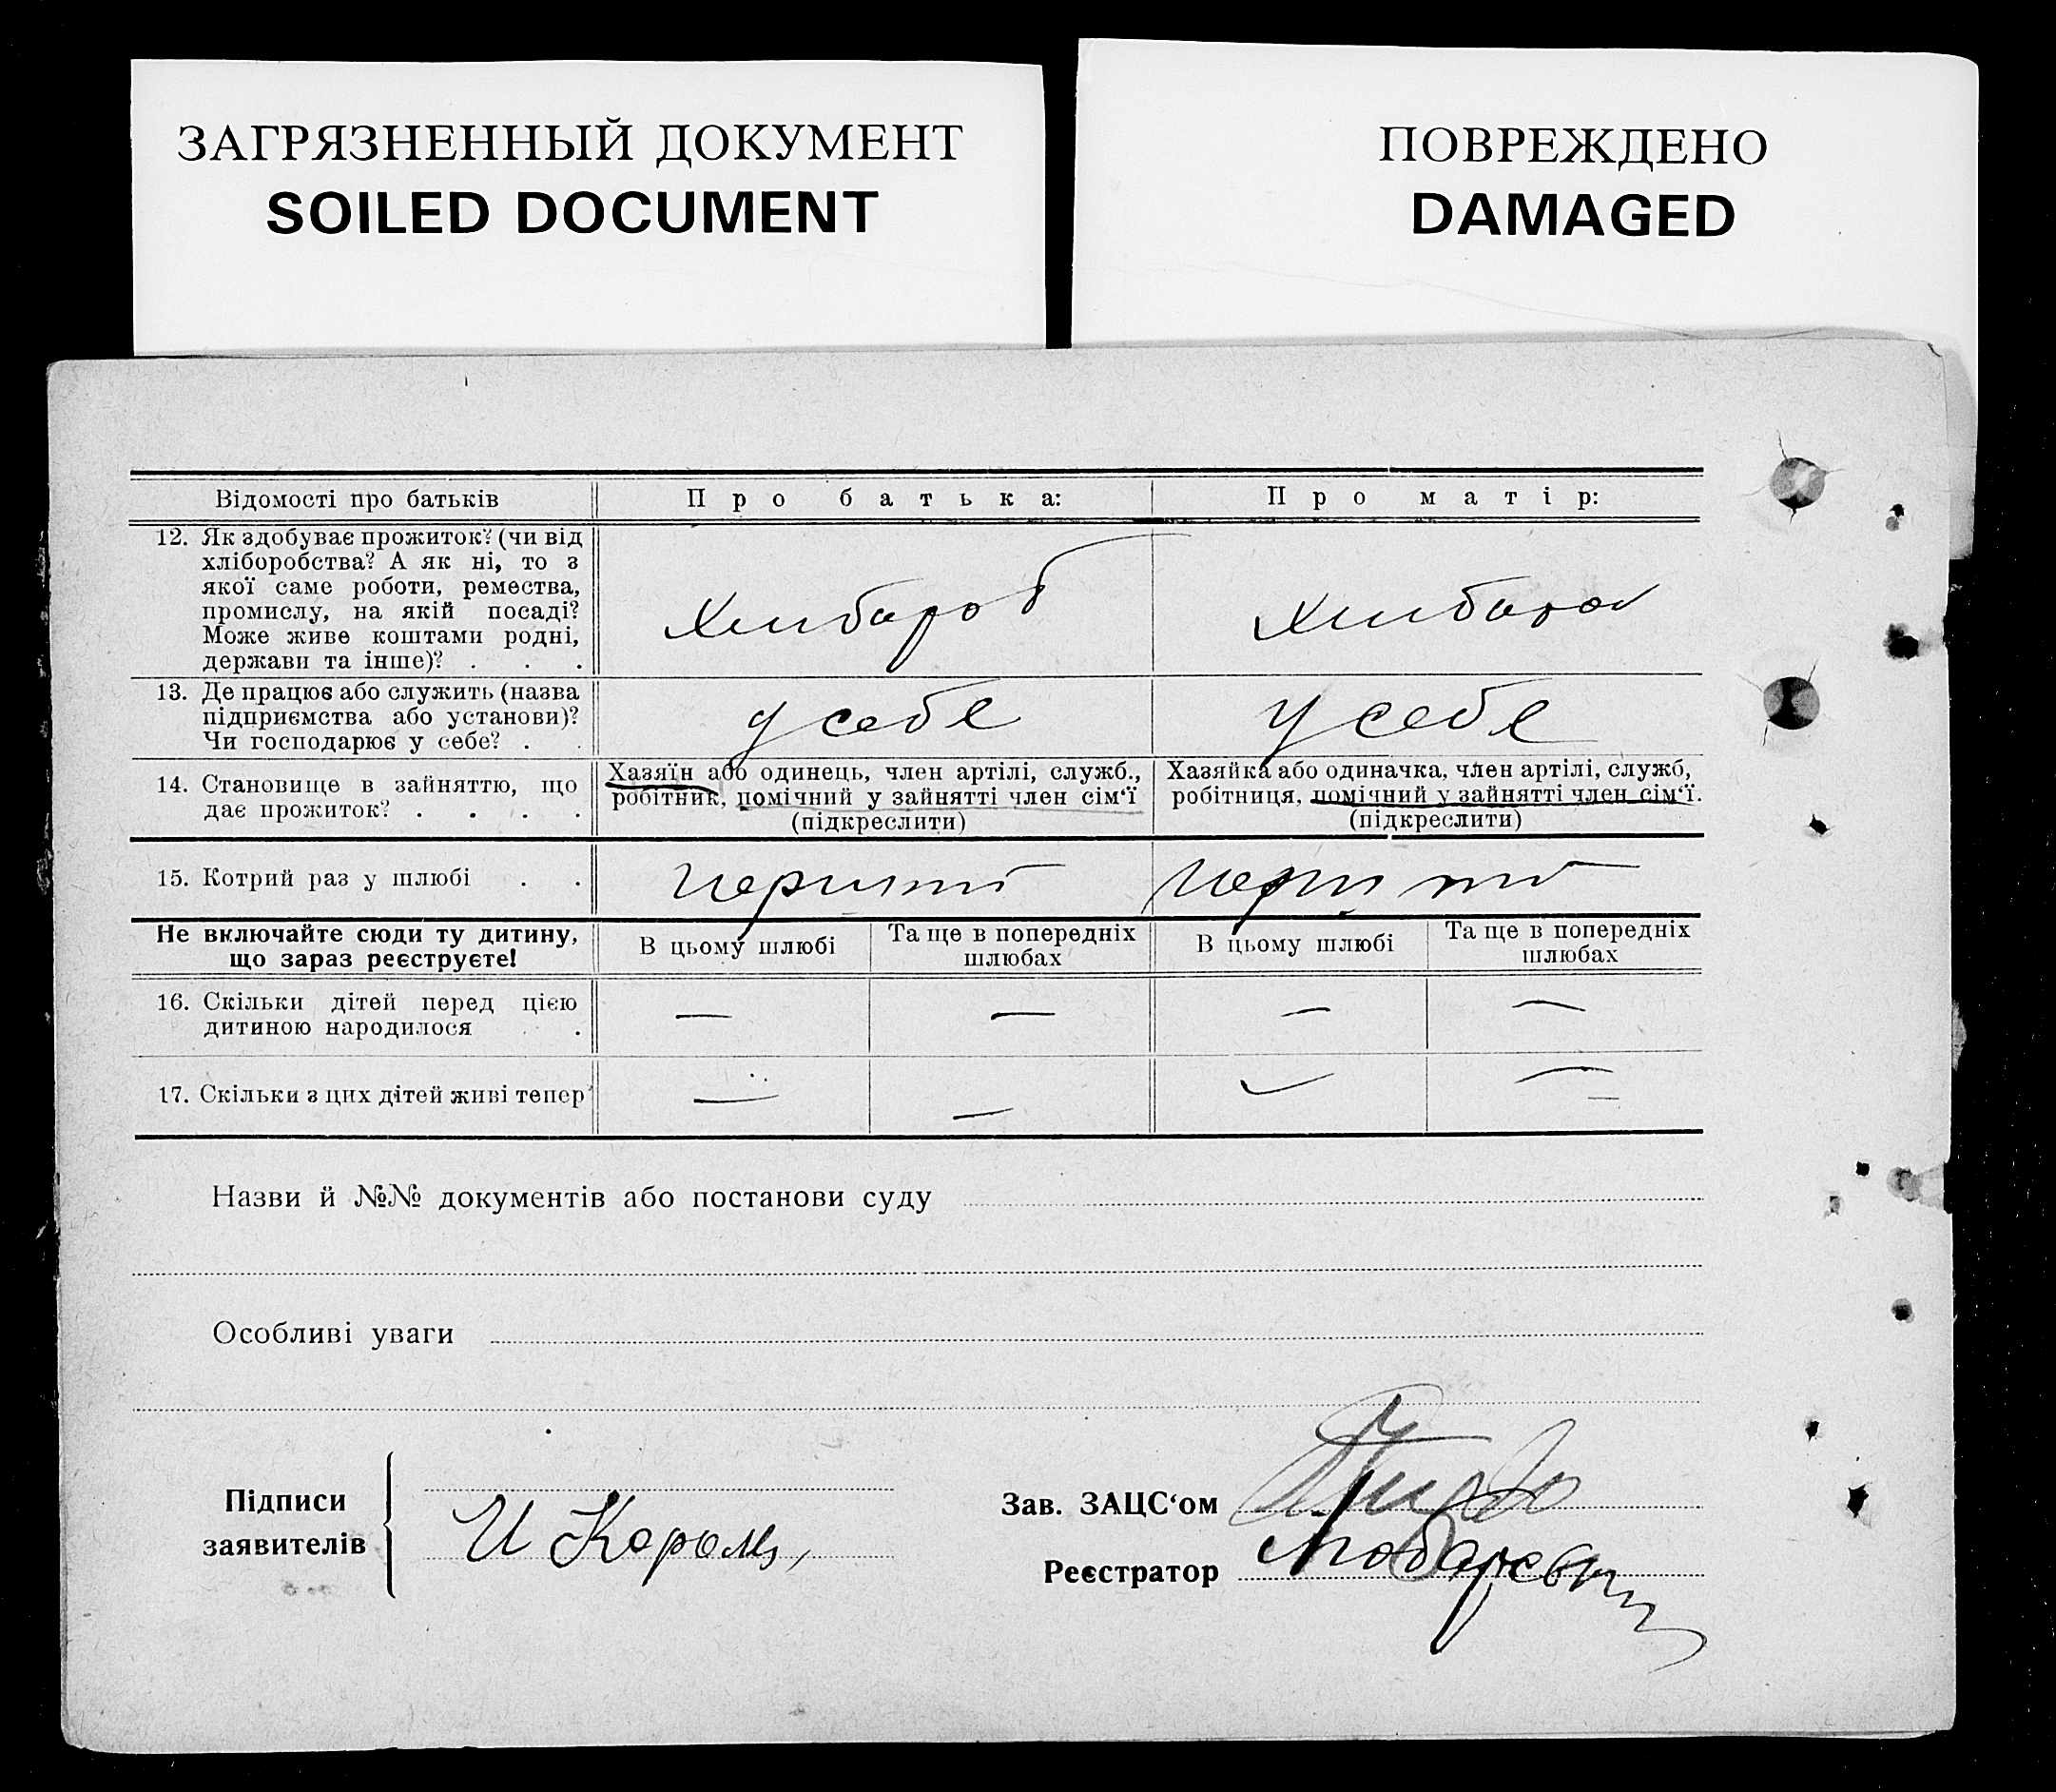 ЗАГРЯЗНЕННЫЙ ДОКУМЕНТ
SOILED DOCUMENT
ПОВРЕЖДЕНО
DAMAGED
Відомості про батьків
Про батька:
Про матір:
12. Як здобуває прожиток? (чи від
хліборобства? А як ні, то з
якої саме роботи, ремества,
промислу, на якій посаді?
Може живе коштами родні,
держави та інше)? . . .
Хлибороб
13. Де працює або служить (назва
підприємства або установи)?
Чи господарює у себе? . .
у себе
у себе
14. Становище в зайняттю, що
дає прожиток? . . . .
Хазяїн або одинець, член артілі, служб.,
робітник, помічний у зайнятті член сім‘ї
(підкреслити)
Хазяйка або одиначка, член артілі, служб,
робітниця, помічний у зайнятті член сім‘ї.
(підкреслити)
15. Котрий раз у шлюбі . .
Не включайте сюди ту дитину,
що зараз реєструєте!
В цьому шлюбі
Та ще в попередніх
шлюбах
В цьому шлюбі
Та ще в попередніх
шлюбах
16. Скільки дітей перед цією
дитиною народилося . .
— — — —
17. Скільки з цих дітей живі тепер
— — — —
Назви й №№ документів або постанови суду
Особливі уваги
Підписи
заявителів
И Король,
Зав. ЗАЦС‘ом
Реєстратор